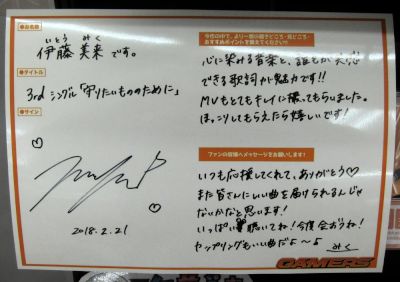 ●お名前
いとう みく
伊藤 美来 です。
●タイトル
3rd シングル「守りたいもののために」
●サイン
2018.2.21
おすすめポイントを教えてください!
心に染みる音楽と、誰もが共感
できる歌詞が魅力です!!
MVもとてもキレイに撮ってもらいました。
ほっこりしてもらえたら嬉しいです!
ファンの皆様へメッセージをお願いします!
いつも応援してくれて、ありがとう♡
また皆さんにいい曲を届けられるんじゃ
ないかなと思います!
いっぱい聴いてね!今度会おうね!
カップリングもいい曲だよ〜よ みく
GAMERS